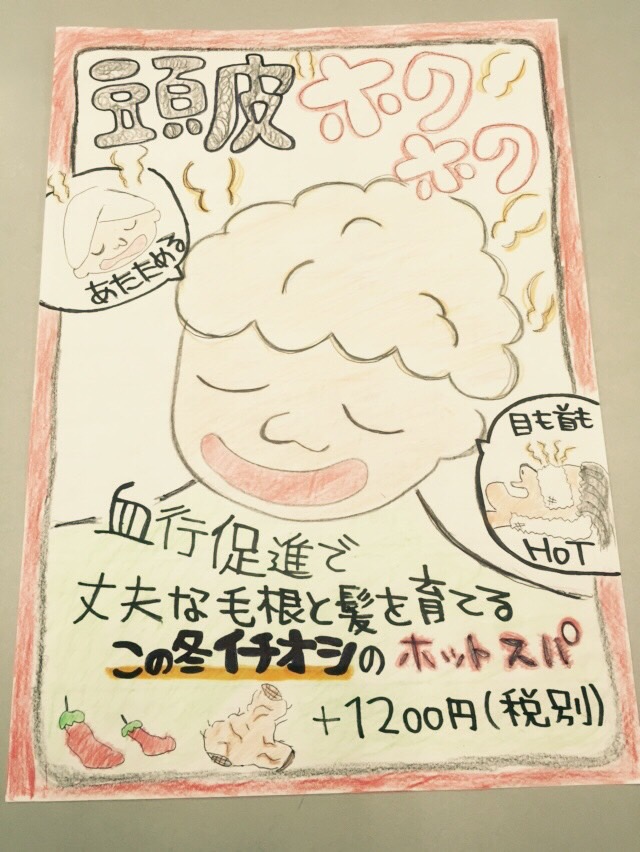 頭皮ホク
ホク
あたためる
目も首も
HOT
血行促進で
丈夫な毛根と髪を育てる
この冬イチオシのホットスパ
+1200円(税別)